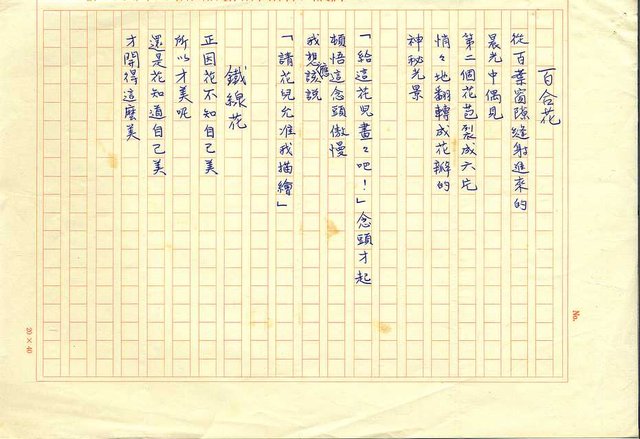 百合花
從百葉窗隙縫射進來的
晨光中偶見
第二個花苞裂成六片
悄々地翻轉成花瓣的
神秘光景
「給這花兒畫々吧!」念頭才起
頓悟這念頭傲慢
我想應該說
「請花兒允准我描繪」
鐵線花
正因花不知自己美
所以才美呢
還是花知道自己美
才開得這麼美
No.
20×40